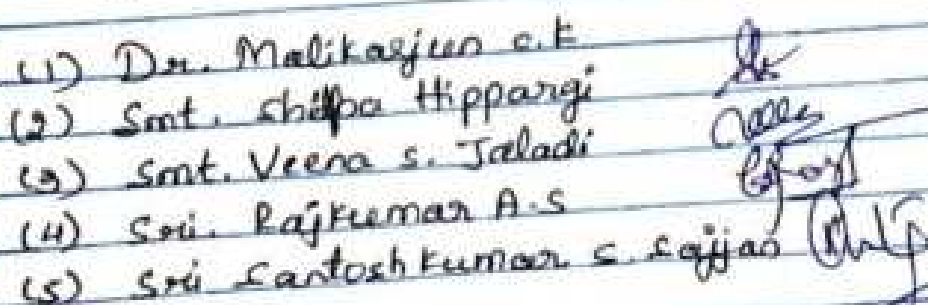 (1) Dr. Malikarjun C.K
(2) Smt. Shilpa Hippargi
(3) Smt. Veena S. Jaladi
(4) Sri. Rajkumar A.S
(5) Sri Santosh kumar S. Sajjan